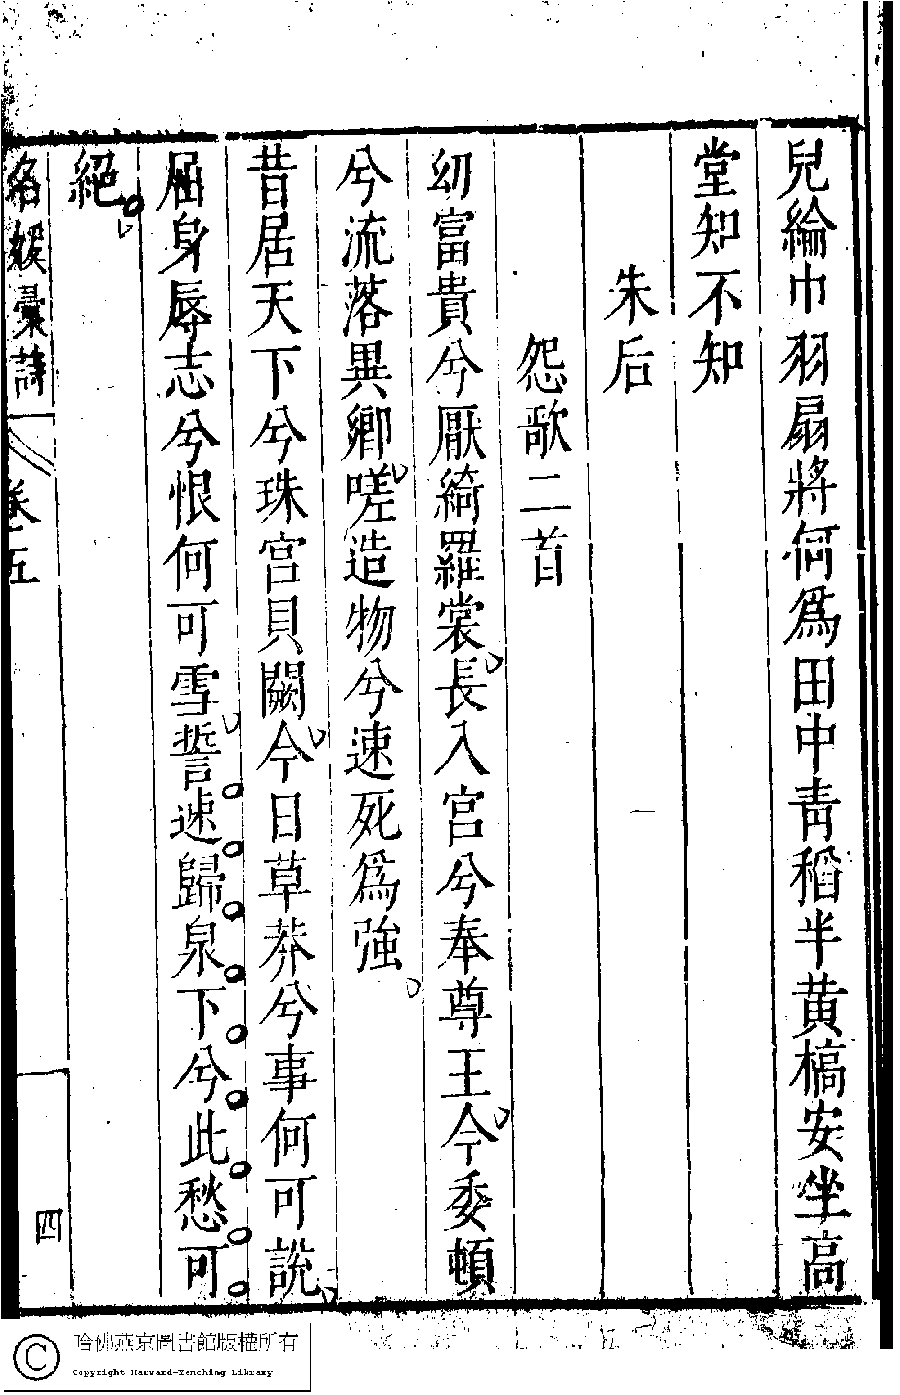 兒綸巾羽扇將何爲田中靑稻半黃槁安坐高
堂知不知
朱后
怨歌二首
幼富貴兮厭綺羅裳長入宮兮奉尊王今委頓
兮流落異鄉嗟造物兮速死爲強
昔居天下兮珠宮貝闕今日草莽兮事何可說
屈身辱志兮恨何可雪誓速歸泉下兮此愁可
絕
名媛彙詩 卷五 四
哈佛燕京圖書館版權所有
Copyright Harvard-Yenching Library